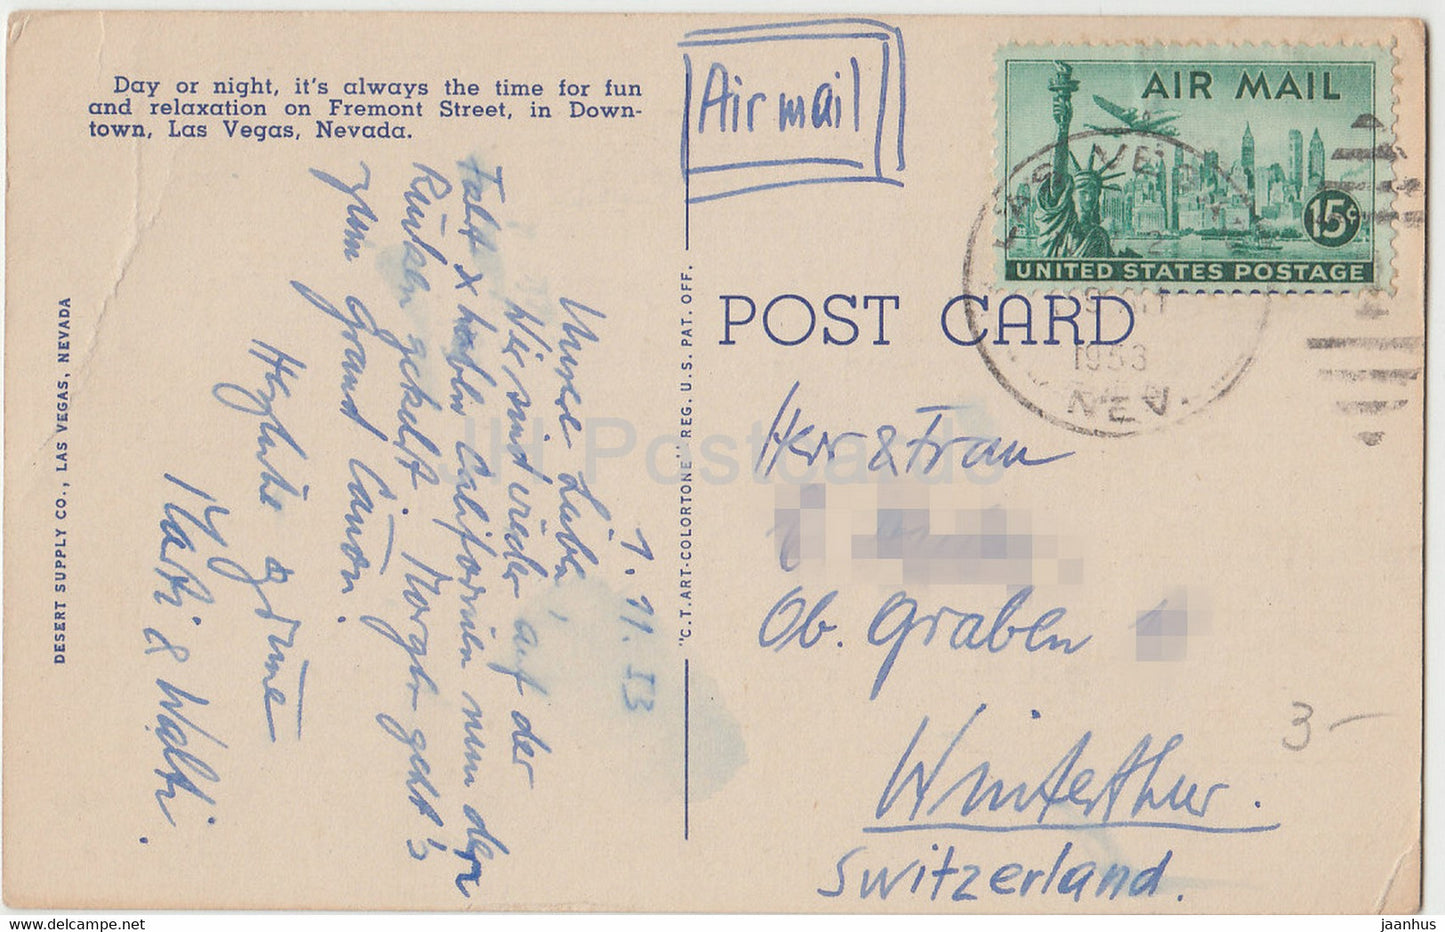 Day or night, it's always the time for fun
and relaxation on Fremont Street, in Down-
town, Las Vegas, Nevada.
Air mail
AIR MAIL
15¢
UNITED STATES POSTAGE
LAS VEGAS
1953
NEV.
POST CARD
DESERT SUPPLY CO., LAS VEGAS, NEVADA
"C.T. ART-COLORTONE" REG. U.S. PAT. OFF.
1. 11. 53
Unsere Lieben,
Wir sind wieder auf der
Fahrt & haben Californien nun den
Rücken gekehrt. Morgen geht's
zum Grand Cañon.
Herzliche Grüsse
& Walti.
Herr & Frau
Ob. Graben
Winterthur.
Switzerland.
3-
JH Postcards
https://www.delcampe.net
jaanhus